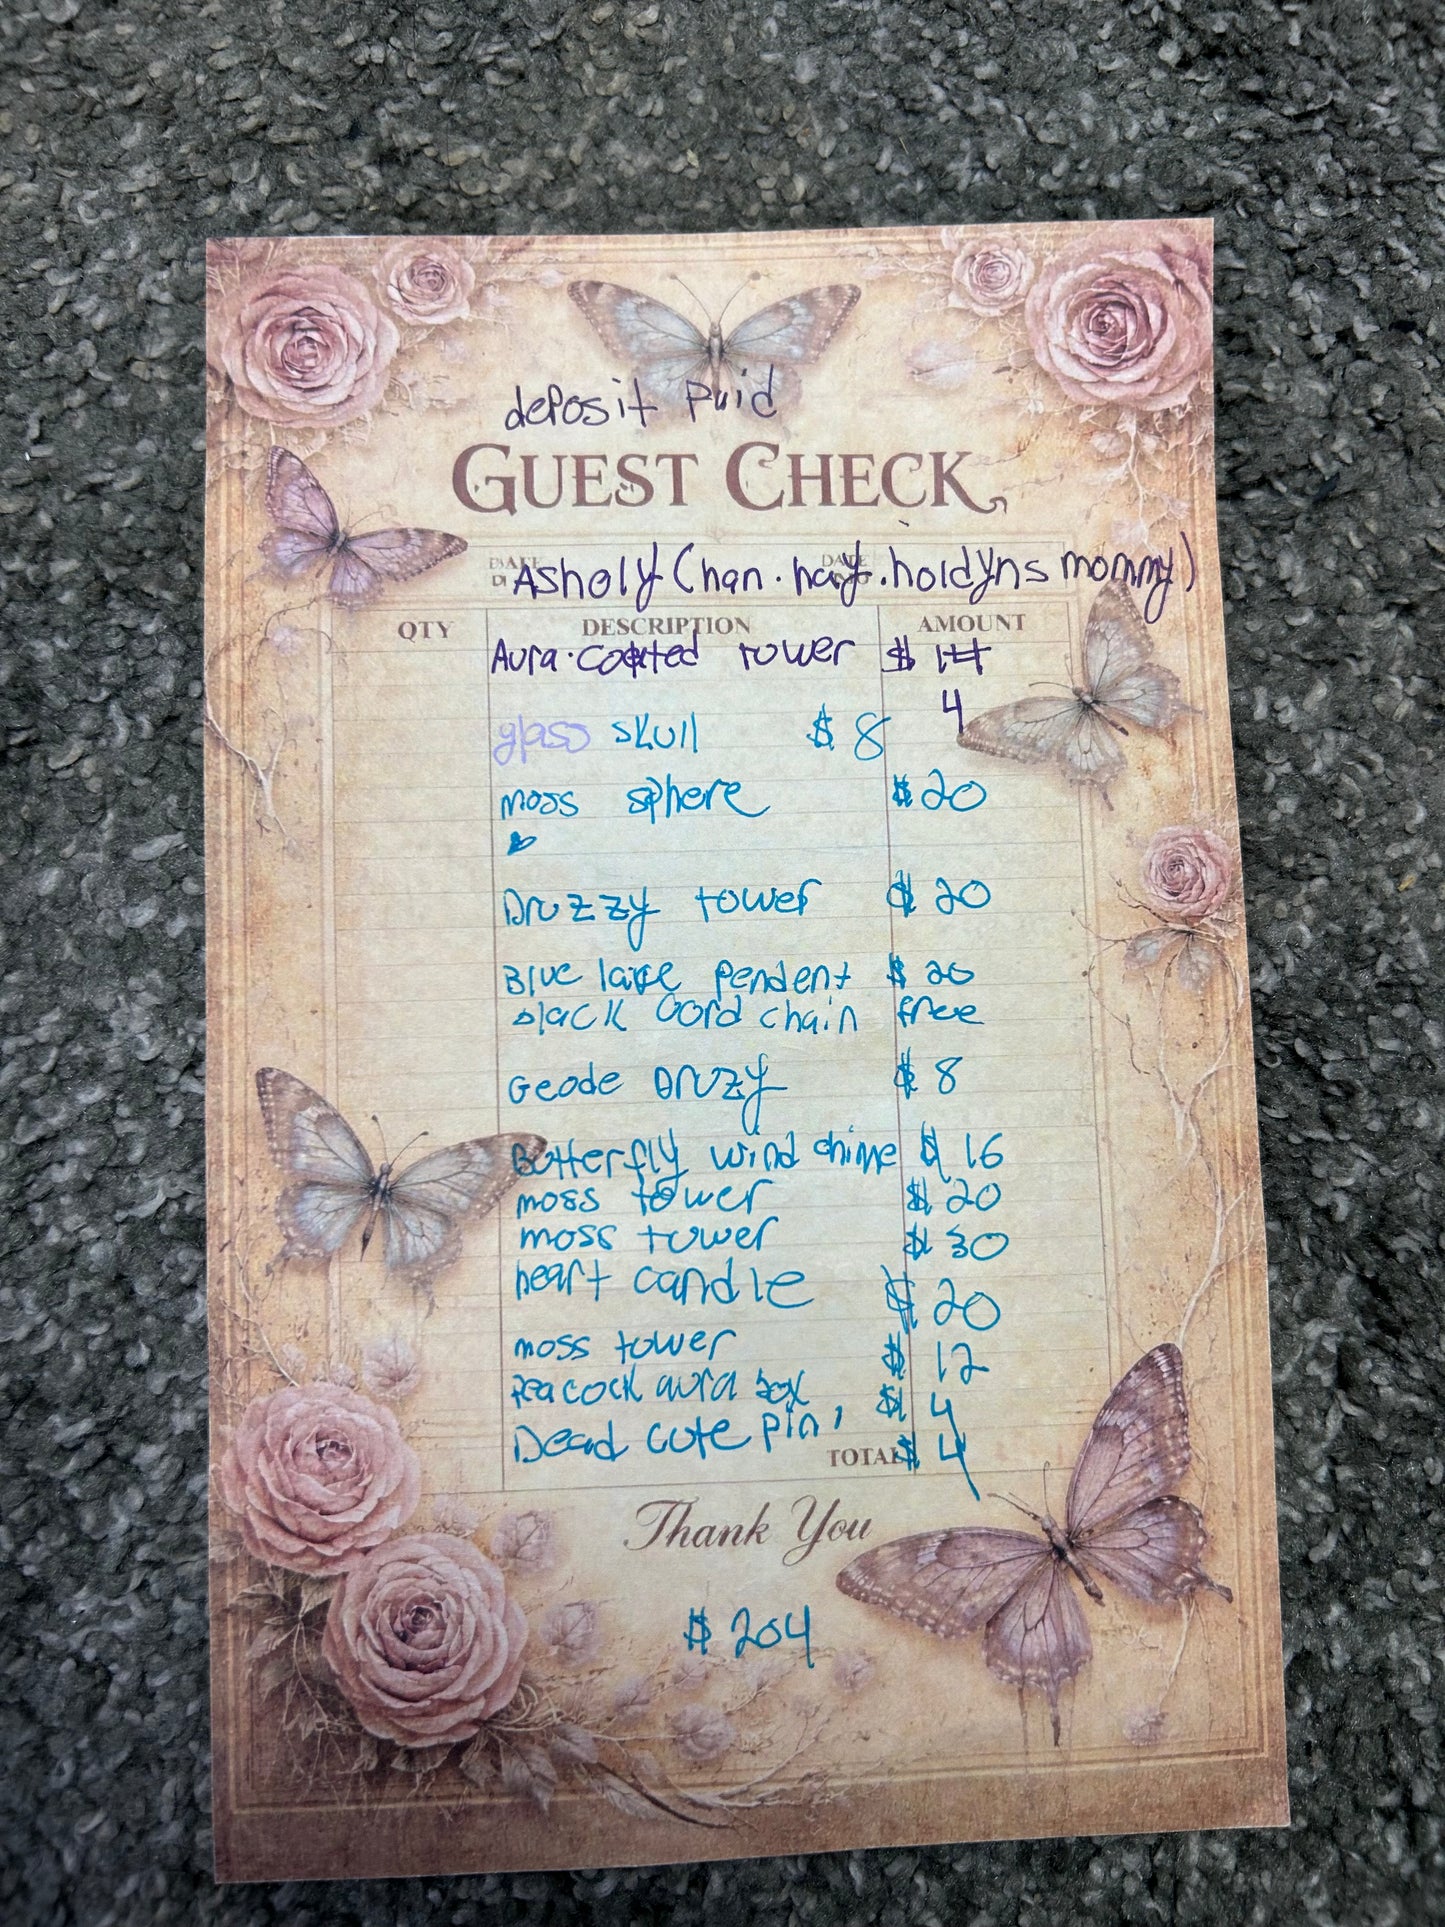 deposit Paid
GUEST CHECK
DATE DATE
Asholy (han.hay.holdyns mommy)
QTY DESCRIPTION AMOUNT
Aura.coated tower $
4
glass skull $ 8
moss sphere $ 20
Druzzy tower $ 20
Blue pendent $ 20
black cord chain free
Geode Druzy $ 8
Butterfly wind chime $ 16
moss tower $ 20
moss tower $ 30
heart candle $ 20
moss tower $ 12
Peacock aura box $ 4
Dead cute pin, $ 4
TOTAL
Thank You
$ 204